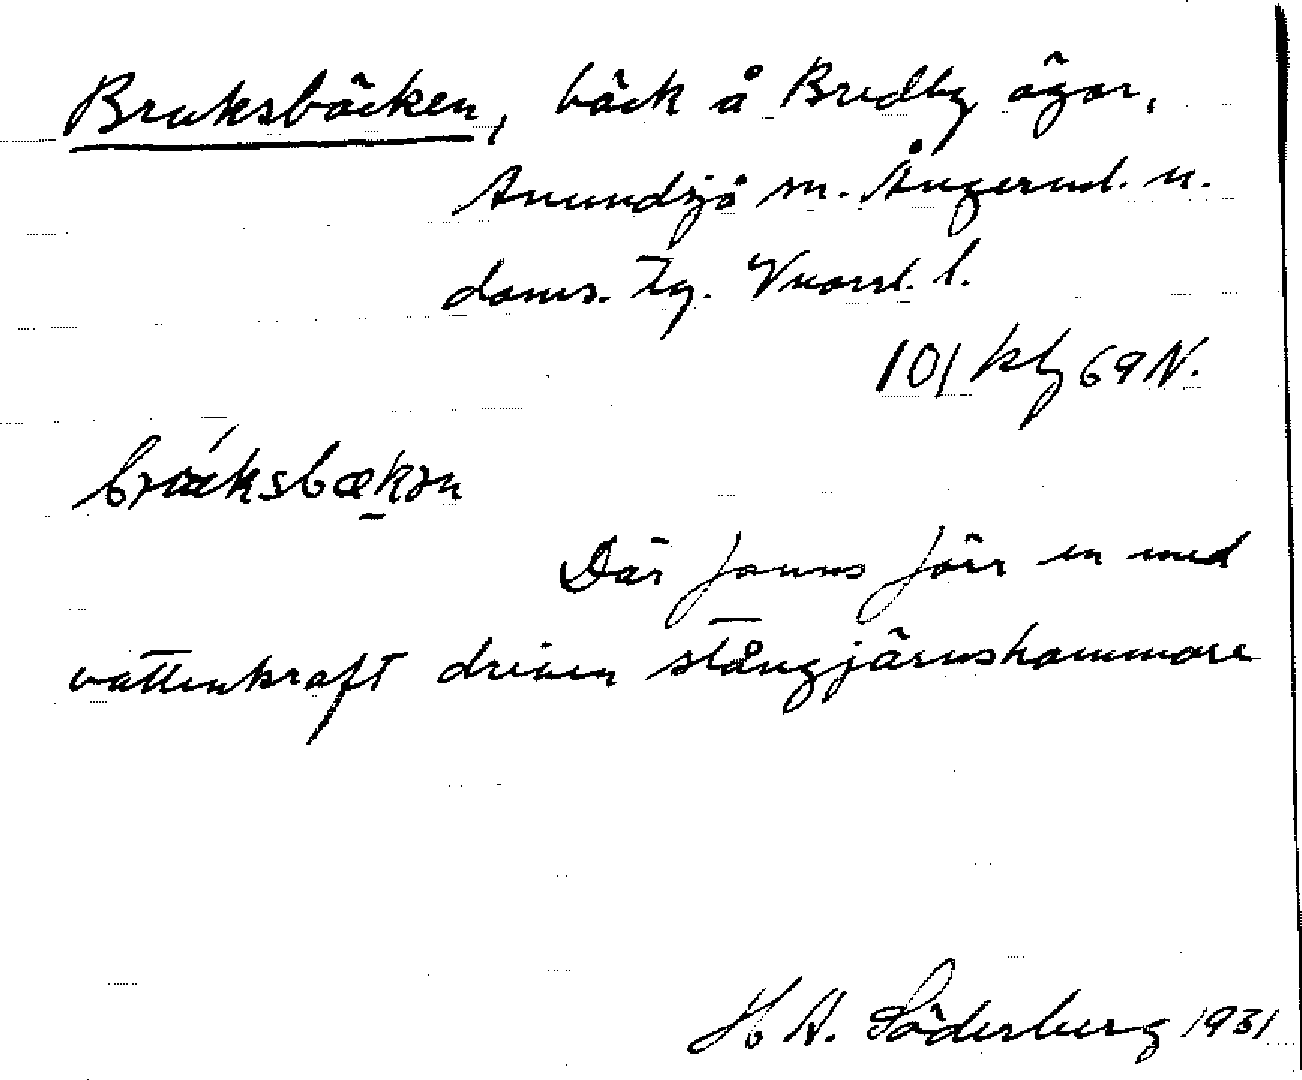 Bruksbäcken, bäck å Bredby ägor,
Anundsjö sn. Ångerml. n.
doms. tg. Vnorrl. l.
101 kbg 69 N.
Där fanns förr en med
vattenkraft driven stångjärnshammare
H A. Söderberg 1931